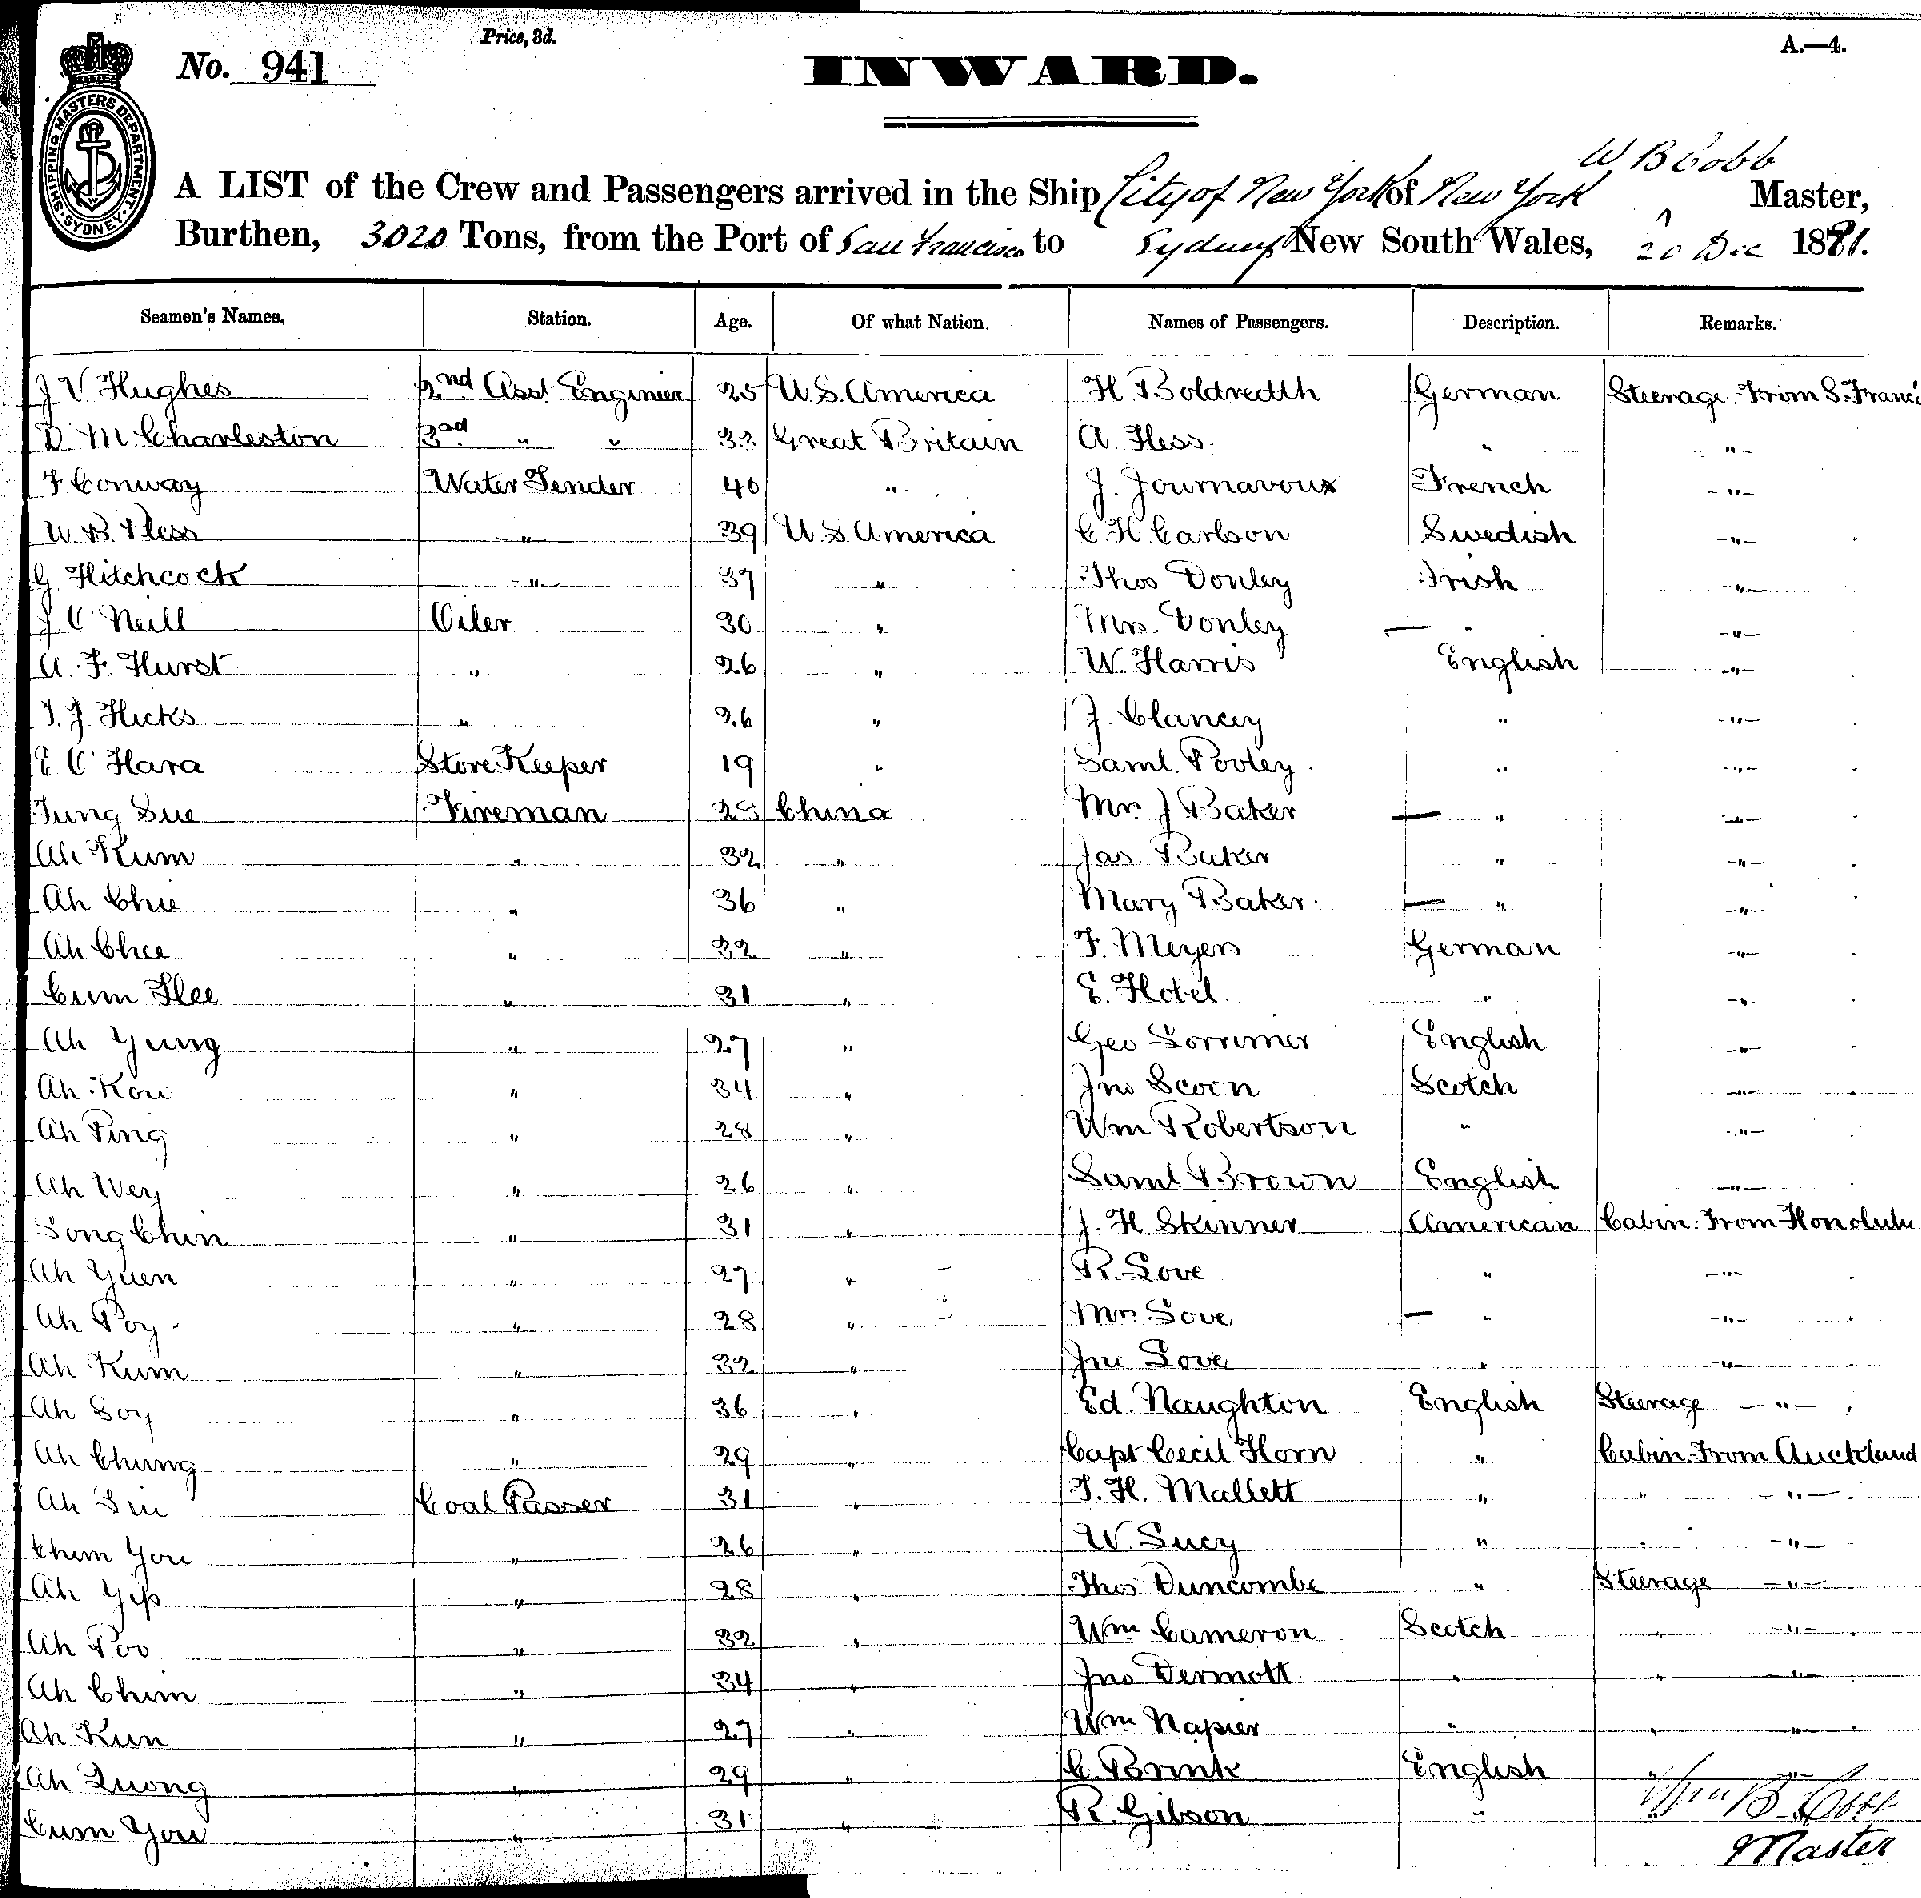 Price, 3d.
A.—4.
No. 941
INWARD.
SHIPPING MASTERS DEPARTMENT SYDNEY
W B Cobb
A LIST of the Crew and Passengers arrived in the Ship City of New York of New York Master,
Burthen, 3020 Tons, from the Port of San Francisco to Sydney New South Wales, 20 Dec 1881.
Seamen's Names. Station. Age. Of what Nation. Names of Passengers. Description. Remarks.
J V Hughes 2nd Asst Enginier 25 U.S. America H Boldredth German Steerage From S. Franci
D McCharleston 3rd " " 33 Great Britain A. Hess " "
F Conway Water Tender 40 " J. Journavoux French "
W. B. Pless " 39 U S America C H Carlson Swedish "
G Hitchcock " 37 " Thos Donley Irish "
J O Neill Oiler 30 " Mrs. Donley — " "
A. F. Hurst " 26 " W. Harris English "
T. J. Hicks " 26 " J. Clancey " "
E O Hara Store Keeper 19 " Saml. Pooley " "
Tung Sue Fireman 28 China Mrs J Baker — " "
Ah Kum " 32 " Jas Baker " "
Ah Chie " 36 " Mary Baker — " "
Ah Chee " 32 " F. Meyers German "
Cum Hee " 31 " E. Hotel " "
Ah Yung " 27 " Geo Lorrimer English "
Ah Kou " 34 " Jno Scorn Scotch "
Ah Ping " 28 " Wm Robertson " "
Ah Wey " 26 " Saml Brown English "
Song Chin " 31 " J. H Skinner American Cabin. From Honolulu
Ah Yuen " 27 " R. Love " "
Ah Poy " 28 " Mrs Love — " "
Ah Kum " 32 " Jno Love " "
Ah Soy " 36 " Ed. Naughton English Steerage "
Ah Chung " 29 " Capt Cecil Horn " Cabin. From Auckland
Ah Sin Coal Passer 31 " T. H. Mallett " " "
Chim You " 26 " W. Lucy " " "
Ah Yip " 28 " Thos Duncombe " Steerage "
Ah Poo " 32 " Wm Cameron Scotch " "
Ah Chim " 34 " Jno Dermott " " "
Ah Kun " 27 " Wm Napier " " "
Ah Quong " 29 " C. Brink English " "
Cum You " 31 " R. Gibson " " "
Wm B. Cobb
Master